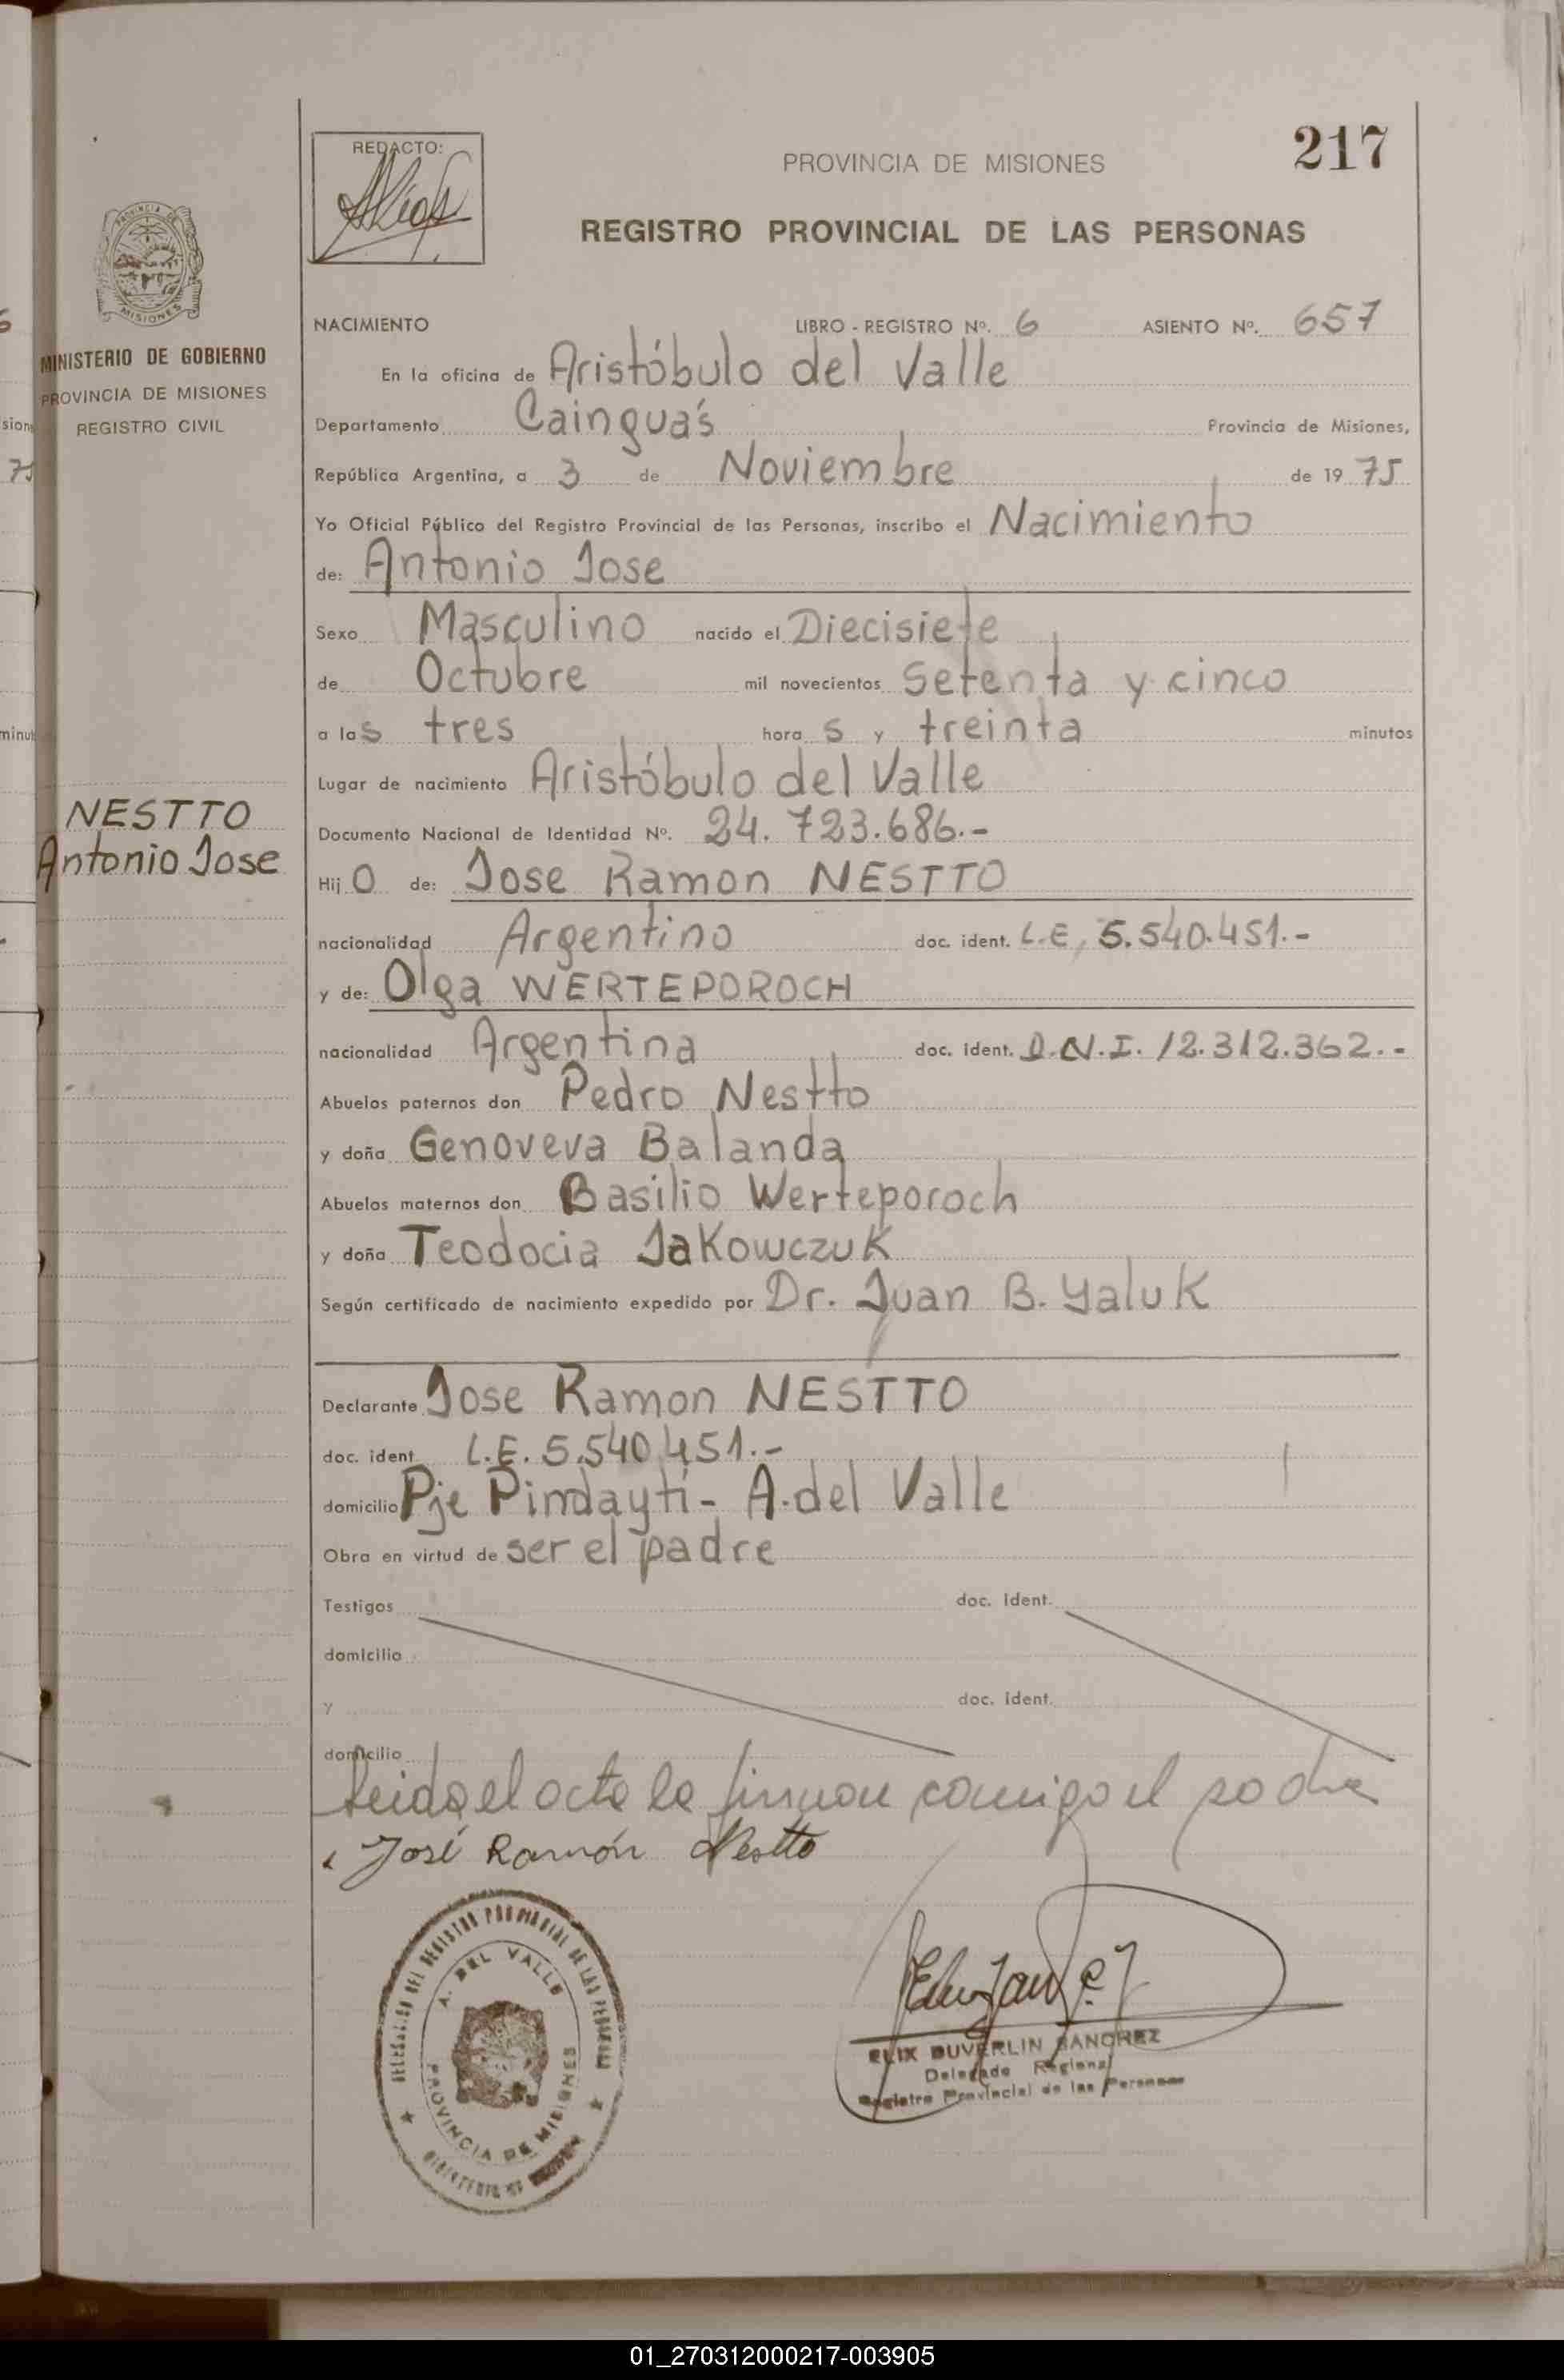 217
REDACTO:
PROVINCIA DE MISIONES
REGISTRO PROVINCIAL DE LAS PERSONAS
MINISTERIO DE GOBIERNO
PROVINCIA DE MISIONES
REGISTRO CIVIL
NESTTO
Antonio Jose
NACIMIENTO LIBRO - REGISTRO Nº. 6 ASIENTO Nº. 657
En la oficina de Aristóbulo del Valle
Departamento Cainguás Provincia de Misiones,
República Argentina, a 3 de Noviembre de 19 75
Yo Oficial Público del Registro Provincial de las Personas, inscribo el Nacimiento
de: Antonio Jose
Sexo Masculino nacido el Diecisiete
de Octubre mil novecientos setenta y cinco
a las tres hora s y treinta minutos
Lugar de nacimiento Aristóbulo del Valle
Documento Nacional de Identidad Nº. 24.723.686.-
Hij O de: Jose Ramon NESTTO
nacionalidad Argentino doc. ident. L.E, 5.540.451.-
y de: Olga WERTEPOROCH
nacionalidad Argentina doc. ident. D.N.I. 12.312.362.-
Abuelos paternos don Pedro Nestto
y doña Genoveva Balanda
Abuelos maternos don Basilio Werteporoch
y doña Teodocia JaKowczuK
Según certificado de nacimiento expedido por Dr. Juan B. YaluK
Declarante Jose Ramon NESTTO
doc. ident L.E. 5.540.451.-
domicilio Pje Pindaytí - A. del Valle
Obra en virtud de ser el padre
Testigos doc. ident.
domicilio
y doc. ident.
domicilio
leida el acta la firman comigo el padre
José Ramón Nestto
DELEGACION DEL REGISTRO PROVINCIAL DE LAS PERSONAS
A. DEL VALLE
PROVINCIA DE MISIONES
MINISTERIO DE
ELIX DUVERLIN SANCHEZ
Delegado Regional
Registro Provincial de las Personas
01_270312000217-003905